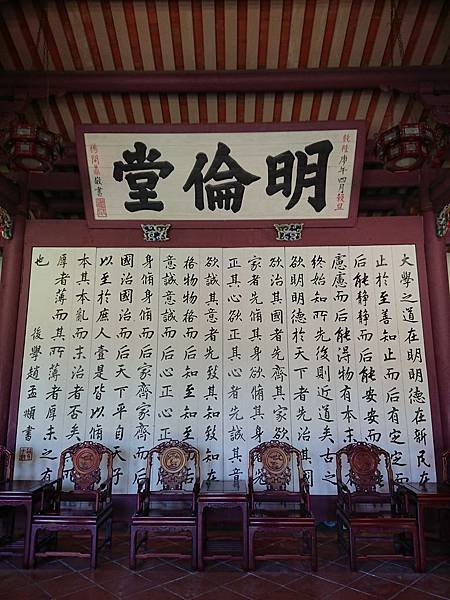 明倫堂
乾隆庚午四月穀旦
敬書
大學之道在明明德在新民在
止於至善知止而后有定定而
后能靜靜而后能安安而
慮慮而后能得物有本末
終始知所先後則近道矣古之
欲明明德於天下者先治其國
欲治其國者先齊其家欲
家者先脩其身欲脩其身
正其心欲正其心者先誠其意
欲誠其意者先致其知致知在
格物物格而后知至知至而
意誠意誠而后心正心正
身脩身脩而后家齊家齊而
國治國治而后天下平自天子
以至於庶人壹是皆以脩
本其本亂而末治者否矣
厚者薄而其所薄者厚未之有
也
後學趙孟頫書